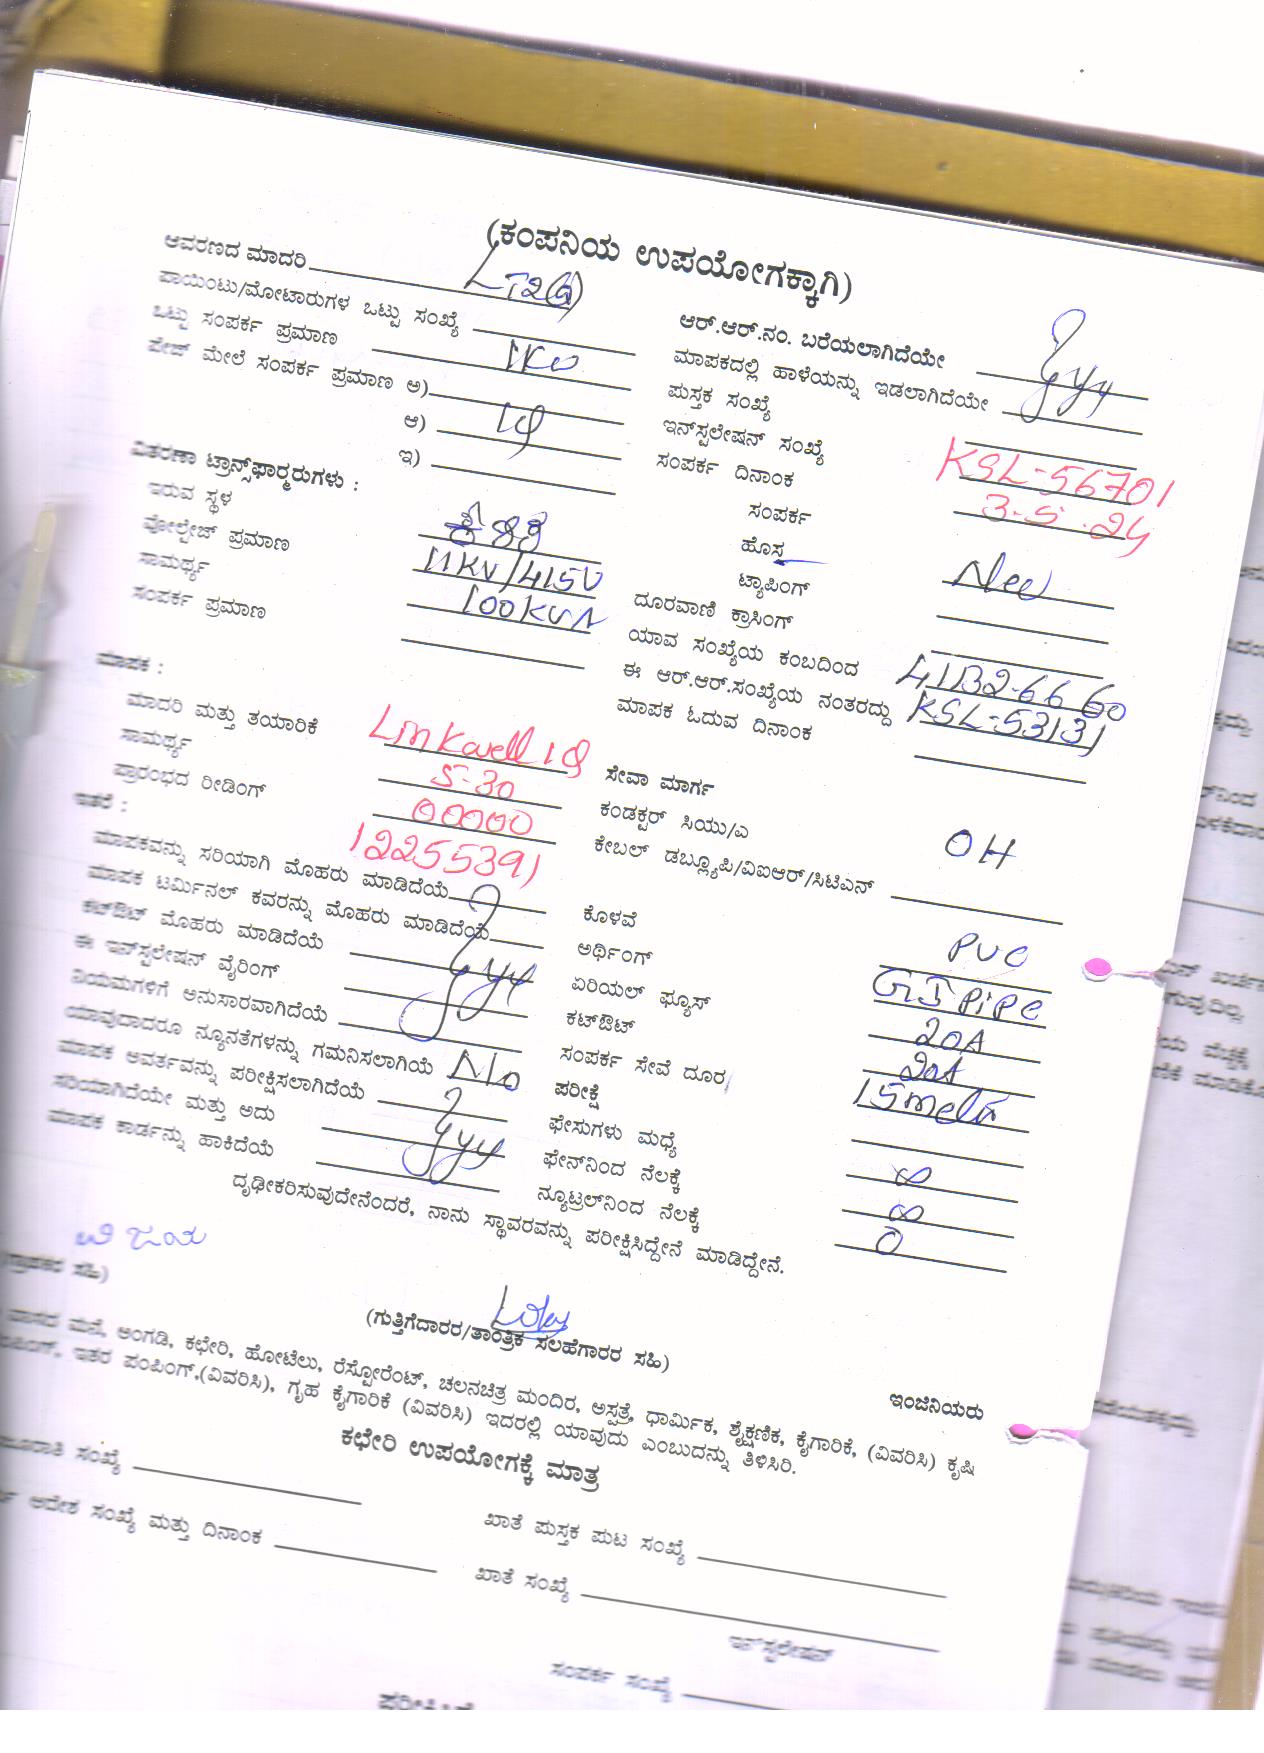 (ಕಂಪನಿಯ ಉಪಯೋಗಕ್ಕಾಗಿ)
ಆವರಣದ ಮಾದರಿ
ಪಾಯಿಂಟು/ಮೋಟಾರುಗಳ ಒಟ್ಟು ಸಂಖ್ಯೆ
ಒಟ್ಟು ಸಂಪರ್ಕ ಪ್ರಮಾಣ 1KW
ಪೇಜ್ ಮೇಲೆ ಸಂಪರ್ಕ ಪ್ರಮಾಣ ಅ)
ಆ) 1Ø
ಇ)
ವಿತರಣಾ ಟ್ರಾನ್ಸ್‌ಫಾರ್‍ಮರುಗಳು :
ಇರುವ ಸ್ಥಳ
ವೋಲ್ಟೇಜ್ ಪ್ರಮಾಣ 11KV/415V
ಸಾಮರ್ಥ್ಯ 100KVA
ಸಂಪರ್ಕ ಪ್ರಮಾಣ
ಮಾಪಕ :
ಮಾದರಿ ಮತ್ತು ತಯಾರಿಕೆ Linkwell 1Ø
ಸಾಮರ್ಥ್ಯ 5-30
ಪ್ರಾರಂಭದ ರೀಡಿಂಗ್ 00000
ಇತರೆ : 12255391
ಮಾಪಕವನ್ನು ಸರಿಯಾಗಿ ಮೊಹರು ಮಾಡಿದೆಯೆ
ಮಾಪಕ ಟರ್ಮಿನಲ್ ಕವರನ್ನು ಮೊಹರು ಮಾಡಿದೆಯೆ
ಕಟ್‌ಔಟ್ ಮೊಹರು ಮಾಡಿದೆಯೆ
ಈ ಇನ್‌ಸ್ಟಲೇಷನ್ ವೈರಿಂಗ್
ನಿಯಮಗಳಿಗೆ ಅನುಸಾರವಾಗಿದೆಯೆ
ಯಾವುದಾದರೂ ನ್ಯೂನತೆಗಳನ್ನು ಗಮನಿಸಲಾಗಿಯೆ No
ಮಾಪಕ ಅವರ್ತವನ್ನು ಪರೀಕ್ಷಿಸಲಾಗಿದೆಯೆ
ಸರಿಯಾಗಿದೆಯೇ ಮತ್ತು ಅದು
ಮಾಪಕ ಕಾರ್ಡನ್ನು ಹಾಕಿದೆಯೆ
ಆರ್.ಆರ್.ನಂ. ಬರೆಯಲಾಗಿದೆಯೇ
ಮಾಪಕದಲ್ಲಿ ಹಾಳೆಯನ್ನು ಇಡಲಾಗಿದೆಯೇ
ಪುಸ್ತಕ ಸಂಖ್ಯೆ
ಇನ್‌ಸ್ಟಲೇಷನ್ ಸಂಖ್ಯೆ KSL-56701
ಸಂಪರ್ಕ ದಿನಾಂಕ 3-5-24
ಸಂಪರ್ಕ
ಹೊಸ New
ಟ್ಯಾಪಿಂಗ್
ದೂರವಾಣಿ ಕ್ರಾಸಿಂಗ್
ಯಾವ ಸಂಖ್ಯೆಯ ಕಂಬದಿಂದ
ಈ ಆರ್.ಆರ್.ಸಂಖ್ಯೆಯ ನಂತರದ್ದು KSL-53131
ಮಾಪಕ ಓದುವ ದಿನಾಂಕ
ಸೇವಾ ಮಾರ್ಗ
ಕಂಡಕ್ಟರ್ ಸಿಯು/ಎ OH
ಕೇಬಲ್ ಡಬ್ಲ್ಯೂಪಿ/ವಿಐಆರ್/ಸಿಟಿಎನ್
ಕೊಳವೆ PVC
ಅರ್ಥಿಂಗ್ GI PiPe
ಏರಿಯಲ್ ಫ್ಯೂಸ್ 20A
ಕಟ್‌ಔಟ್ 20A
ಸಂಪರ್ಕ ಸೇವೆ ದೂರ
ಪರೀಕ್ಷೆ
ಫೇಸುಗಳು ಮಧ್ಯೆ
ಫೇನ್‌ನಿಂದ ನೆಲಕ್ಕೆ ∞
ನ್ಯೂಟ್ರಲ್‌ನಿಂದ ನೆಲಕ್ಕೆ ∞
0
ದೃಢೀಕರಿಸುವುದೇನೆಂದರೆ, ನಾನು ಸ್ಥಾವರವನ್ನು ಪರೀಕ್ಷಿಸಿದ್ದೇನೆ ಮಾಡಿದ್ದೇನೆ.
ವಿಜಯ
ಸಹಿ)
(ಗುತ್ತಿಗೆದಾರರ/ತಾಂತ್ರಿಕ ಸಲಹೆಗಾರರ ಸಹಿ)
ಇಂಜಿನಿಯರು
ವಾಸದ ಮನೆ, ಅಂಗಡಿ, ಕಛೇರಿ, ಹೋಟೆಲು, ರೆಸ್ಟೋರೆಂಟ್, ಚಲನಚಿತ್ರ ಮಂದಿರ, ಅಸ್ಪತ್ರೆ, ಧಾರ್ಮಿಕ, ಶೈಕ್ಷಣಿಕ, ಕೈಗಾರಿಕೆ, (ವಿವರಿಸಿ) ಕೃಷಿ
ಇತರ ಪಂಪಿಂಗ್,(ವಿವರಿಸಿ), ಗೃಹ ಕೈಗಾರಿಕೆ (ವಿವರಿಸಿ) ಇದರಲ್ಲಿ ಯಾವುದು ಎಂಬುದನ್ನು ತಿಳಿಸಿರಿ.
ಕಛೇರಿ ಉಪಯೋಗಕ್ಕೆ ಮಾತ್ರ
ಸಂಖ್ಯೆ
ಖಾತೆ ಪುಸ್ತಕ ಪುಟ ಸಂಖ್ಯೆ
ಆದೇಶ ಸಂಖ್ಯೆ ಮತ್ತು ದಿನಾಂಕ
ಖಾತೆ ಸಂಖ್ಯೆ
ಇನ್‌ಸ್ಟಲೇಷನ್
ಸಂಪರ್ಕ ಸಂಖ್ಯೆ